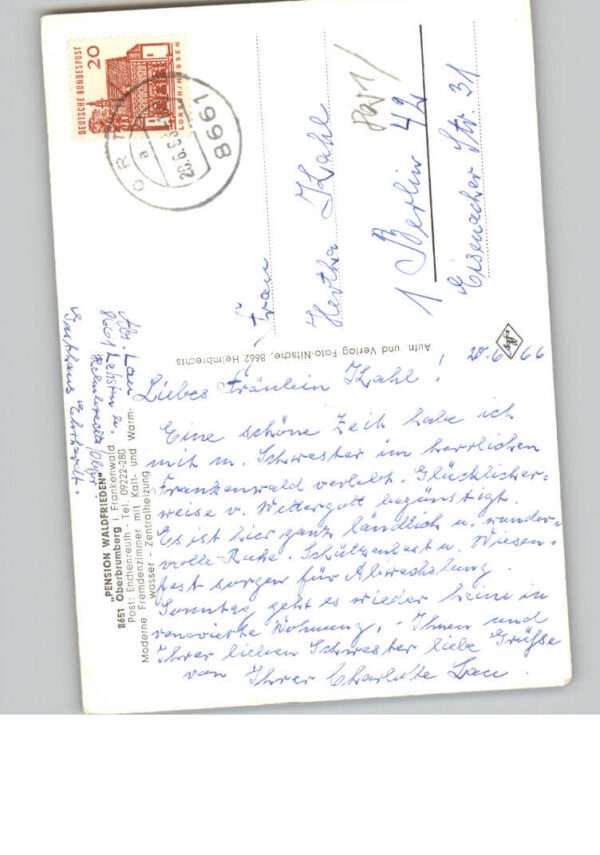 DEUTSCHE BUNDESPOST
20
LORSCH/HESSEN
8661
a
Frau
Hertha Kahl
1 Berlin 42
Eisenacher Str. 31
Aufn. und Verlag Foto-Nitsche, 8662 Helmbrechts
Abs. Lau
8661
Gasthaus
„PENSION WALDFRIEDEN"
8651 Oberbrumberg i Frankenwald
Post: Enchenreuth · Tel. 09222-280
Moderne Fremdenzimmer mit Kalt- und Warm-
wasser · Zentralheizung
20.6.66
Liebes Fräulein Kahl!
Eine schöne Zeit habe ich
mit m. Schwester im herrlichen
Frankenwald verlebt. Glücklicher-
weise v. Wettergott begünstigt.
Es ist hier ganz ländlich u. wunder-
volle Ruhe. Schützenfest u. Wiesen-
fest sorgen für Abwechslung.
Sonntag geht es wieder heim in
renovierte Wohnung. - Ihnen und
Ihrer lieben Schwester liebe Grüße
von Ihrer Charlotte Lau.